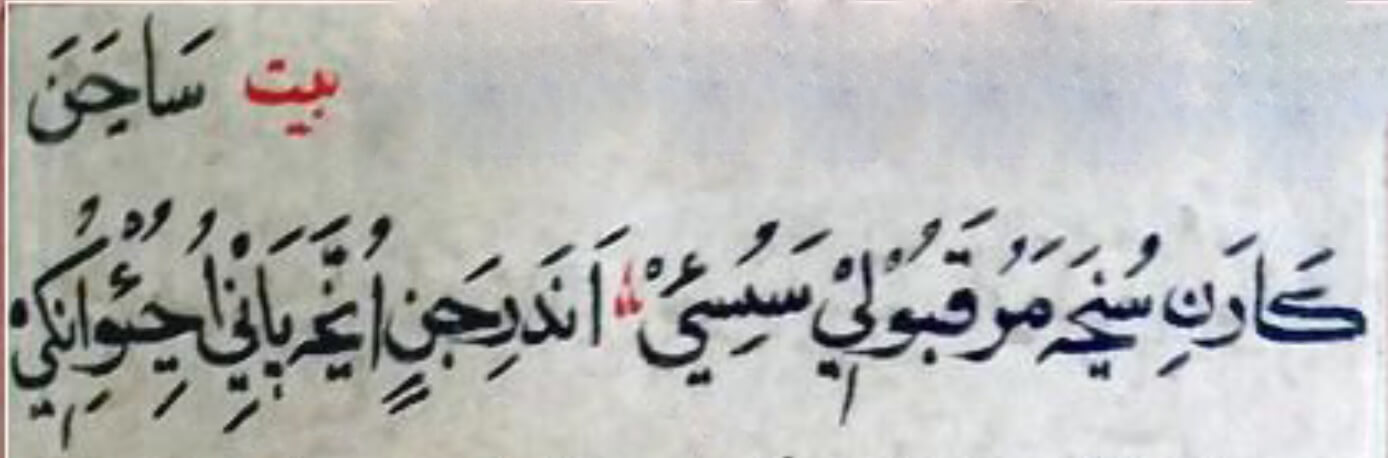 بيت سَاجَنَ
كَارَنِ سُنجَہ مَرُ قَبُوْلِيْ سَسُئِيْ اَنْدَرِ جَنِ اُنّجَہ پَانِيْ اُجِئُوْ اُنكِيْ